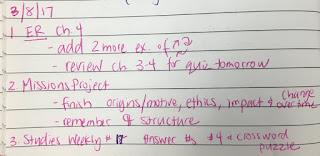 3/8/17
1. ER ch. 4
- add 2 more ex. of
- review ch. 3-4 for quiz tomorrow
2. Missions Project
- finish origins/motive, ethics, impact & change over time
- remember ¶ structure
3. Studies Weekly # 17 Answer #s 4 & crossword puzzle